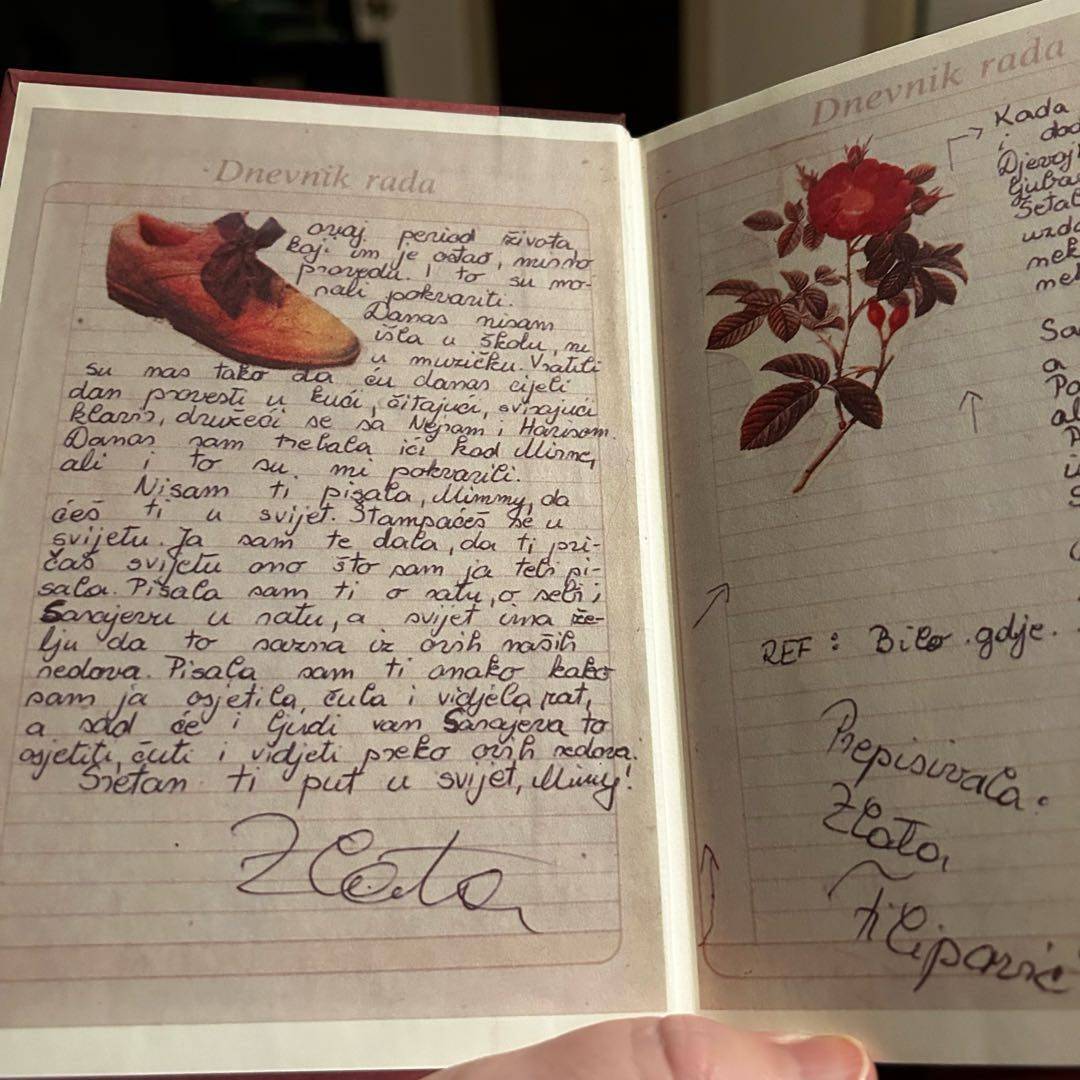 Dnevnik rada
ovaj period života,
koji im je ostao, mirno
provedu. I to su mo-
rali pokvariti.
Danas nisam
išla u školu, ni
u muzičku. Vratili
su nas tako da ću danas cijeli
dan provesti u kući, čitajući, svirajući
klavir, družeći se sa Nejram i Harisom.
Danas sam trebala ići kod Mirne,
ali i to su mi pokvarili.
Nisam ti pisala, Mimmy, da
ćeš ti u svijet. Štampaćeš se u
svijetu. Ja sam te dala, da ti pri-
čaš svijetu ono što sam ja tebi pi-
sala. Pisala sam ti o ratu, o sebi i
Sarajevu u ratu, a svijet ima že-
lju da to sazna iz ovih naših
redova. Pisala sam ti onako kako
sam ja osjetila, čula i vidjela rat,
a sad će i ljudi van Sarajeva to
osjetiti, čuti i vidjeti preko ovih redova.
Sretan ti put u svijet, Mimmy!
Zlata
Dnevnik rada
Kada
i
Djevoj
ljuba
Šetal
uzda
nek
me
Sa
a
Po
al
REF: Bilo gdje.
Prepisivala:
Zlata
Filipović